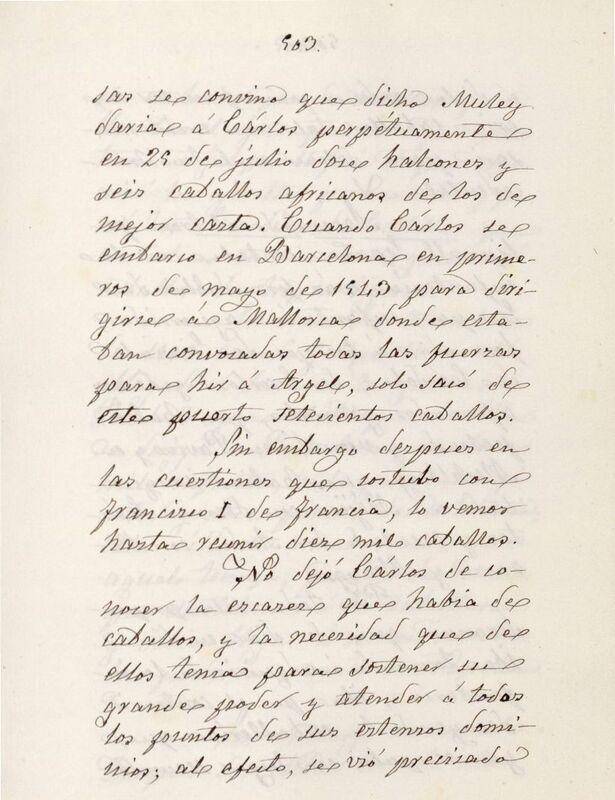 503.
sas se convino que dicho Muley
daria á Cárlos perpétuamente
en 25 de julio doce halcones y
seis caballos africanos de los de
mejor casta. Cuando Cárlos se
embarco en Barcelona en prime-
ros de mayo de 1543 para diri-
girse á Mallorca donde esta-
ban convocadas todas las fuerzas
para hir á Argel, solo sacó de
este puerto setecientos caballos.
Sin embargo despues en
las cuestiones que sostubo con
Francisco I de Francia, lo vemos
hasta reunir diez mil caballos.
No dejó Cárlos de co-
nocer la escasez que habia de
caballos, y la necesidad que de
ellos tenia para sostener su
grande poder y atender á todos
los puntos de sus estensos domi-
nios; al efecto, se vió precisado